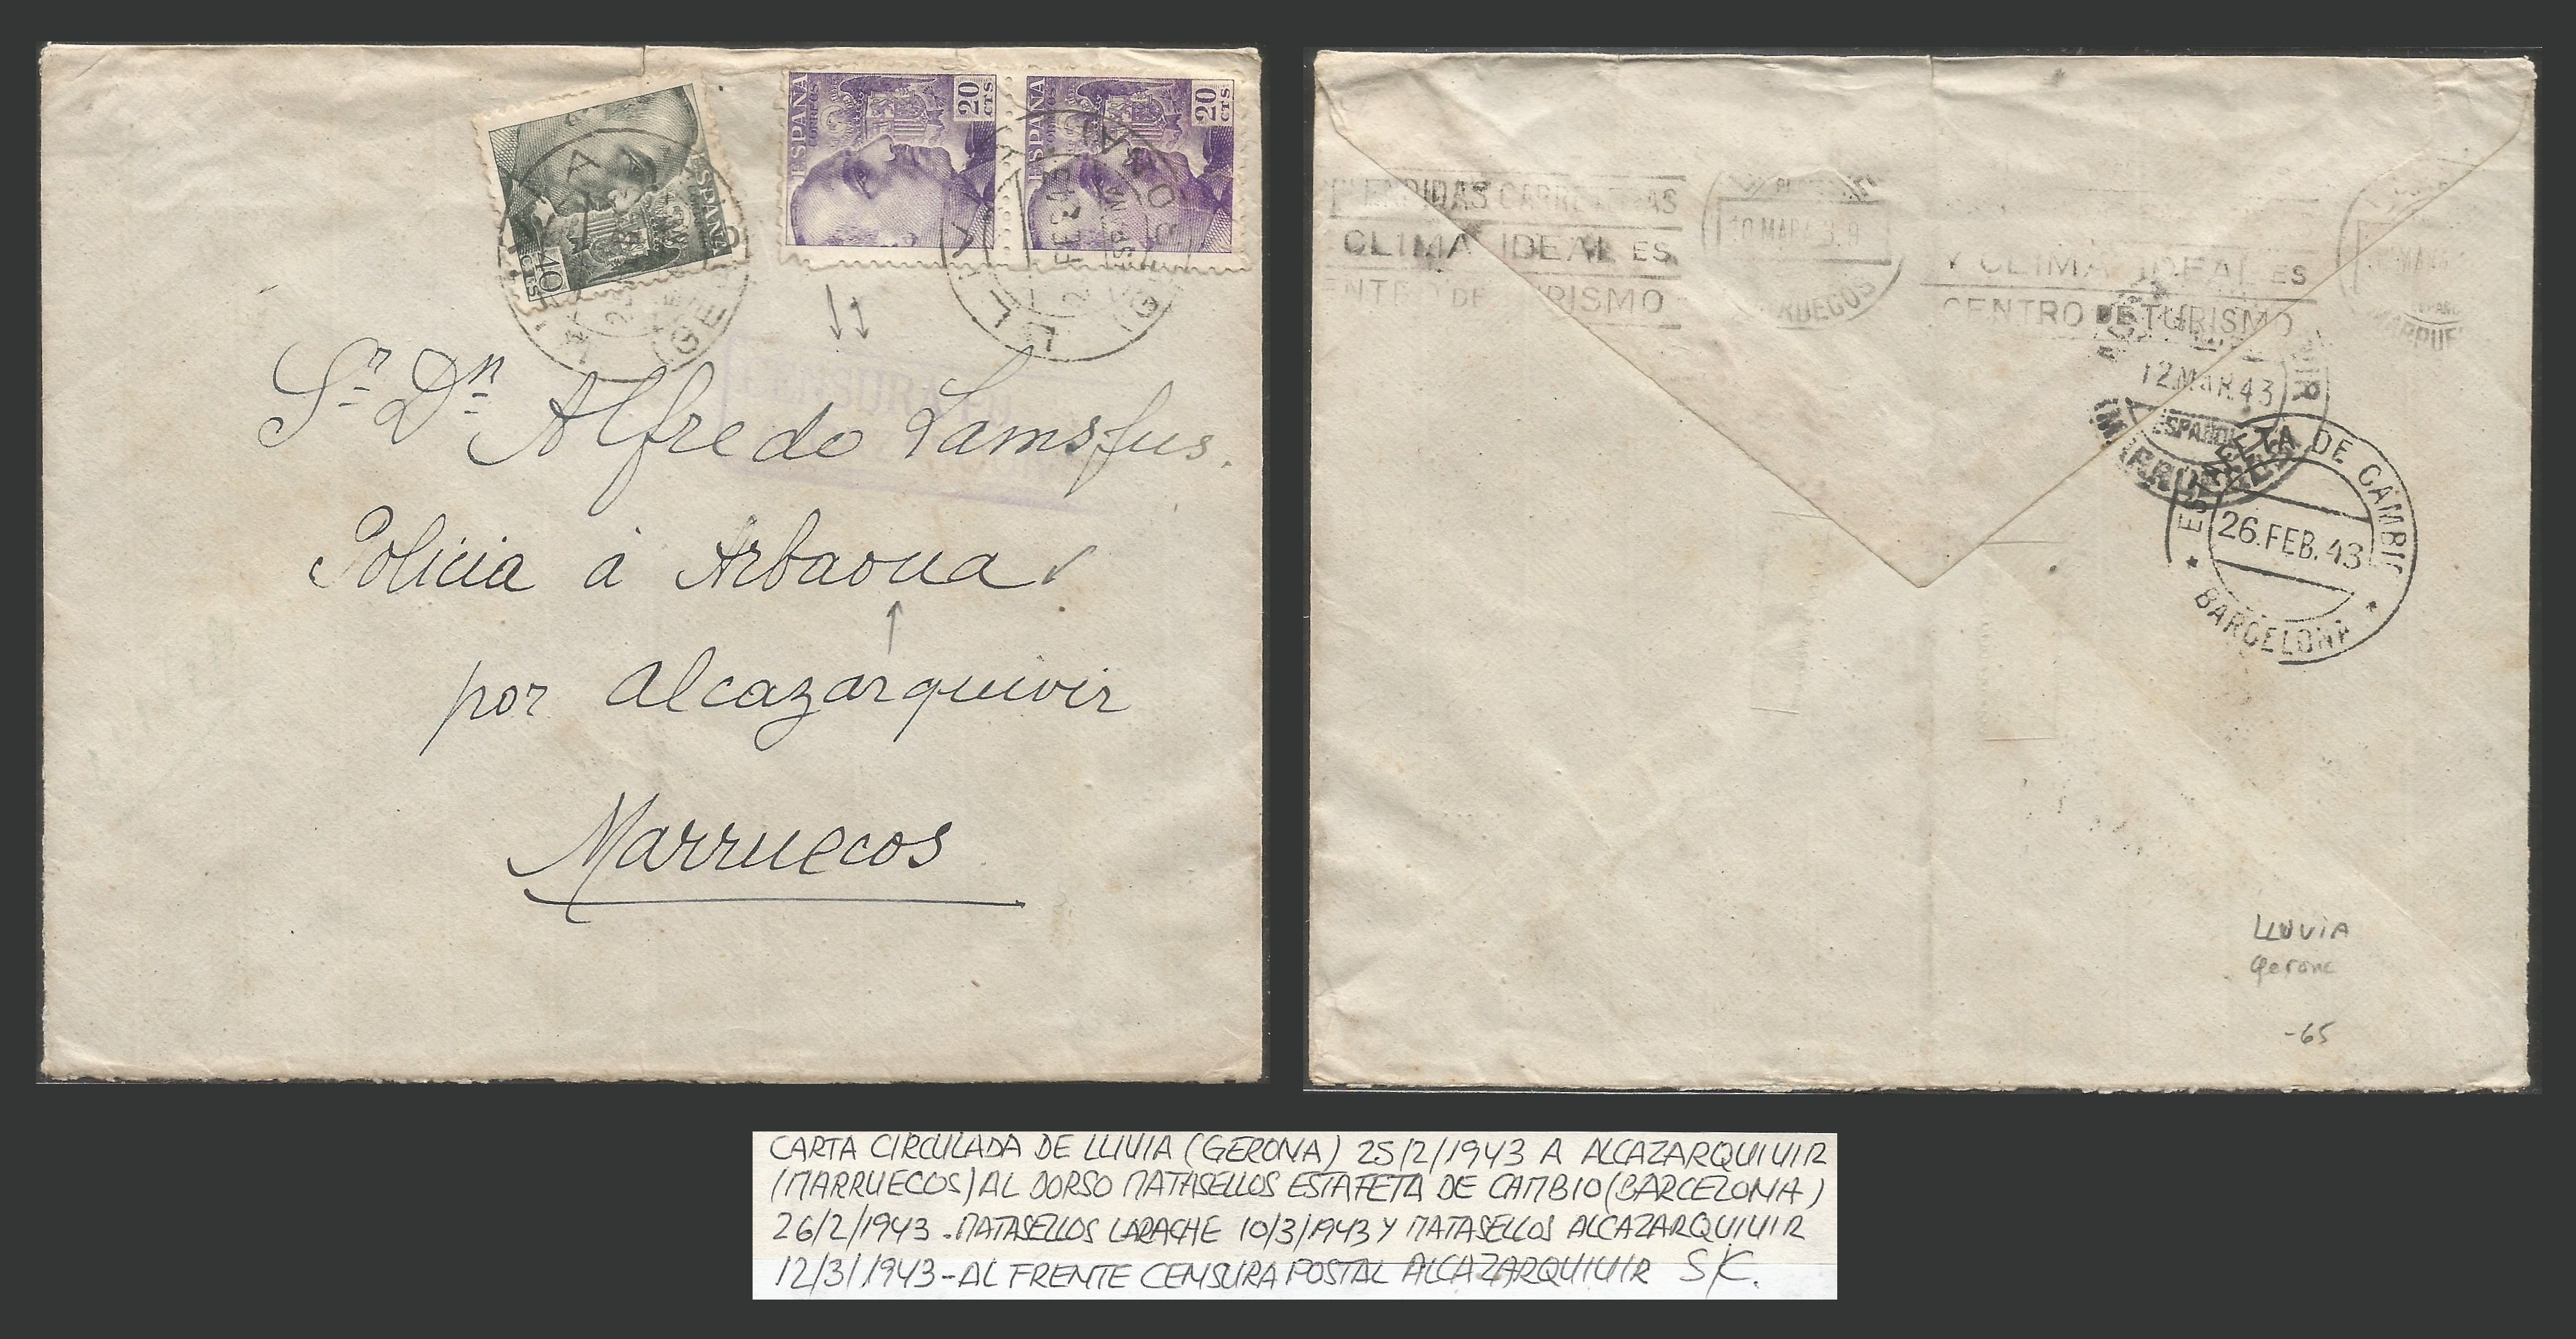 ESPAÑA
40 CTS
ESPAÑA
CORREOS
20 CTS
ESPAÑA
CORREOS
20 CTS
CENSURA
Sr Dn Alfredo Lamsfus.
Policia á Arbaoua
por Alcazarquivir
Marruecos
CLIMA IDEAL ES
TURISMO
10 MAR
Y CLIMA IDEAL ES
CENTRO DE TURISMO
12.MAR.43
ESTAFETA DE CAMBIO
26.FEB.43
* BARCELONA *
LLUVIA
Gerona
-65
CARTA CIRCULADA DE LLIVIA (GERONA) 25/2/1943 A ALCAZARQUIVIR
(MARRUECOS) AL DORSO MATASELLOS ESTAFETA DE CAMBIO (BARCELONA)
26/2/1943. MATASELLOS LARACHE 10/3/1943 Y MATASELLOS ALCAZARQUIVIR
12/3/1943 - AL FRENTE CENSURA POSTAL ALCAZARQUIVIR S/C.